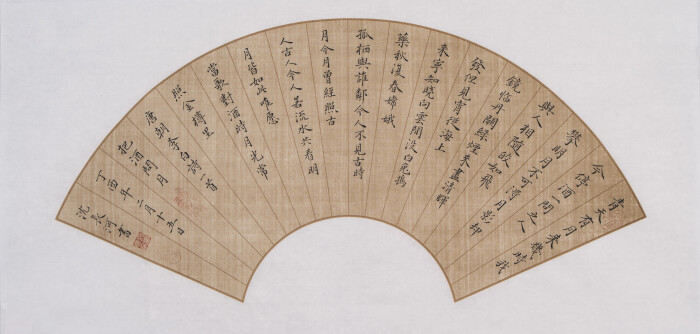 青天有月来幾時我
今停酒一問之人
攀明月不可得月影却
與人相隨皎如飛
鏡臨丹闕綠煙来盡清輝
發但見宵從海上
来寧知曉向雲間没白兔搗
藥秋復春嫦娥
孤栖與誰鄰今人不見古時
月今月曾經照古
人古人今人若流水共看明
月皆如此唯愿
當歌對酒時月光常
照金樽里
唐朝李白詩一首
把酒問月
丁酉年二月十五日
沈長河書